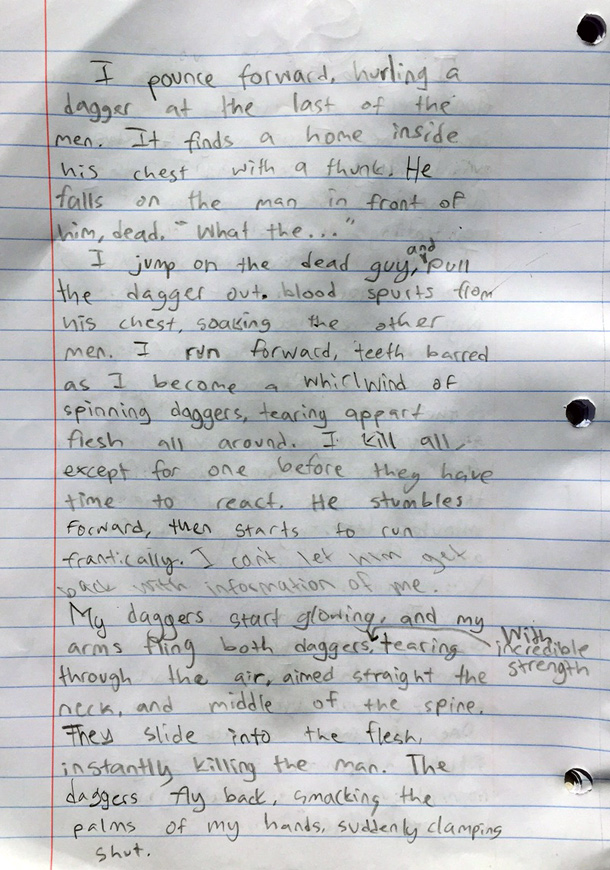 I pounce forward, hurling a
dagger at the last of the
men. It finds a home inside
his chest with a thunk. He
falls on the man in front of
him, dead. "What the..."
I jump on the dead guy, and pull
the dagger out. blood spurts from
his chest, soaking the other
men. I run forward, teeth barred
as I become a whirlwind of
spinning daggers, tearing appart
flesh all around. I kill all
except for one before they have
time to react. He stumbles
forward, then starts to run
frantically. I can't let him get
back with information of me.
My daggers start glowing, and my
arms fling both daggers, with incredible strength tearing
through the air, aimed straight the
neck, and middle of the spine.
They slide into the flesh,
instantly killing the man. The
daggers fly back, smacking the
palms of my hands, suddenly clamping
shut.